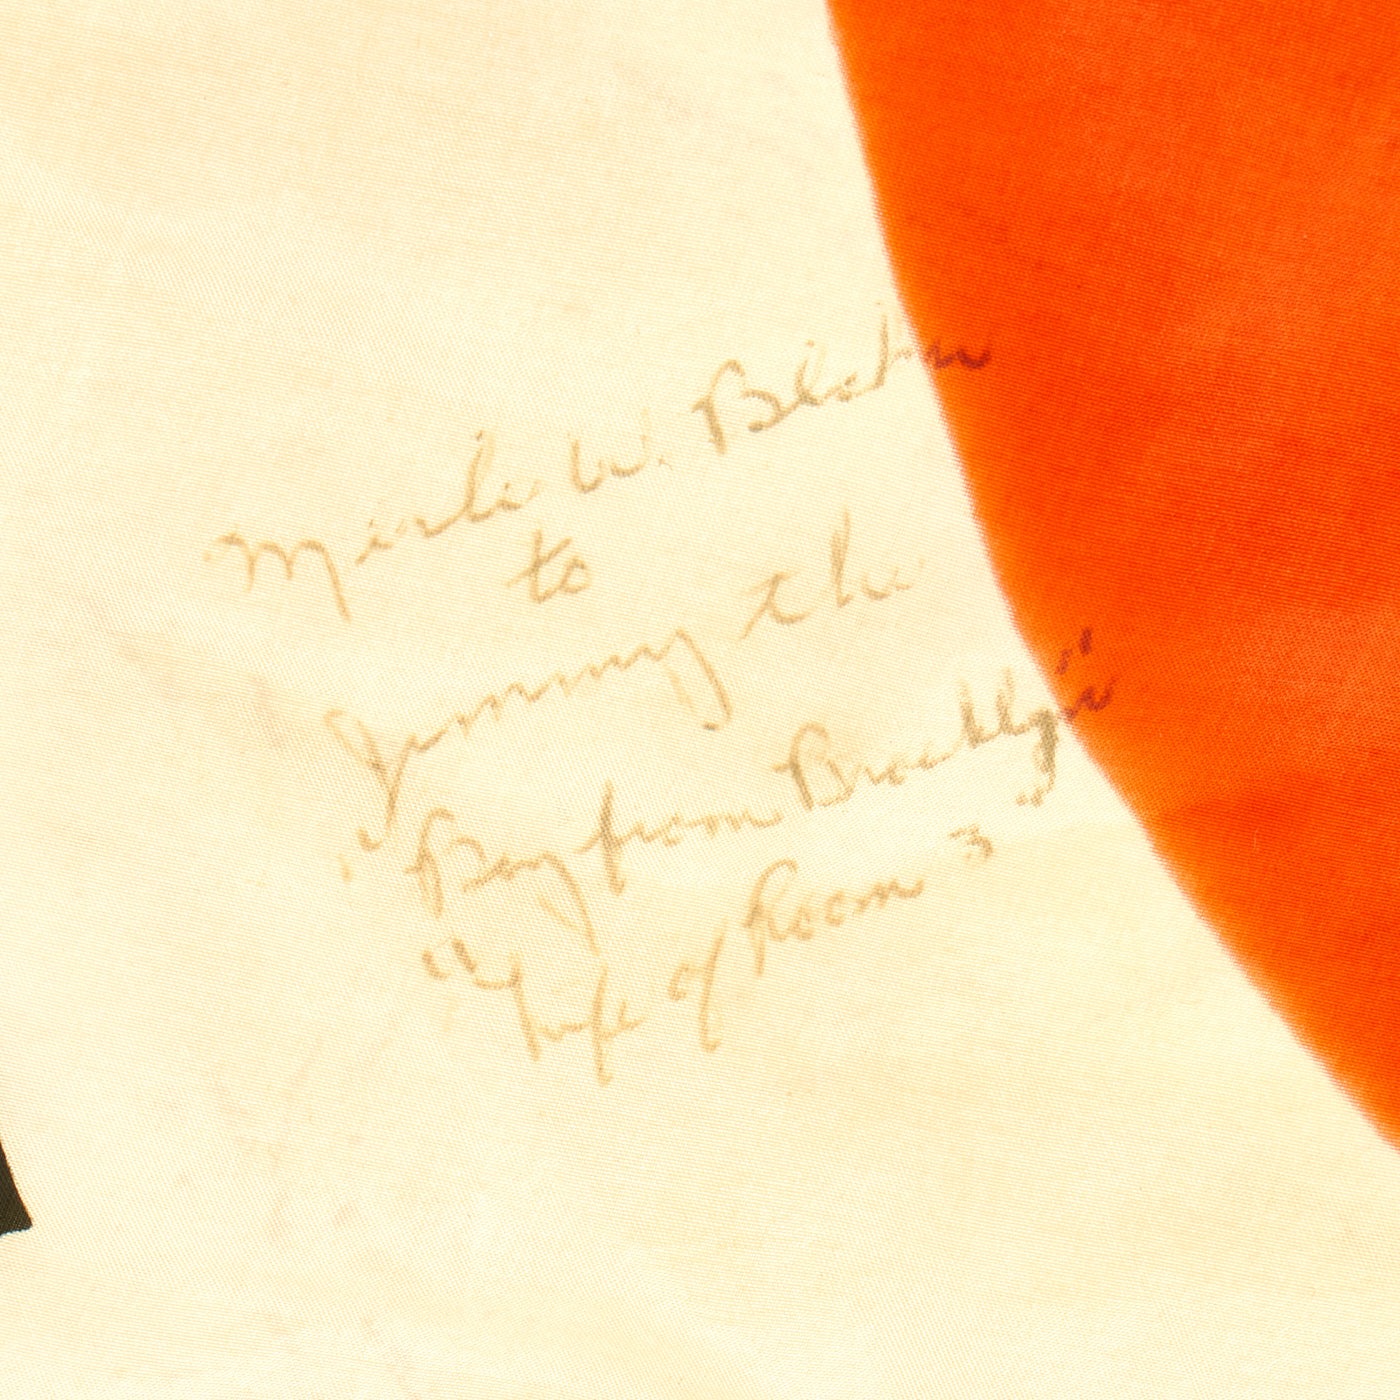 Merle W.
to
Jimmy the
"Boy from Brooklyn"
" of Room 3"